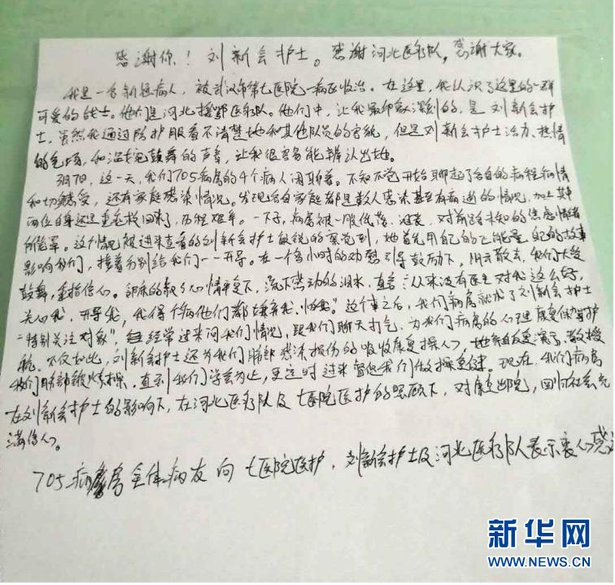 感谢你！刘新会护士。感谢河北医疗队，感谢大家。
我是一名新冠病人，被武汉市第七医院一病区收治。在这里，我认识了这里的一群
可爱的战士。他们是河北援鄂医疗队。他们中，让我最印象深刻的，是刘新会护
士，虽然我通过防护服看不清楚她和其他队员的容貌，但是刘新会护士活力、热情
的和鼓舞的声音，让我很容易能辨认出她。
这一天，我们705病房的4个病人闲聊着。不知不觉开始聊起了各自的病程病情
和切感受，还有家庭感染情况。发现各自家庭都是数人感染甚至有病逝的情况，加上其
两位自己还是重症救回来，历程艰辛。一下子，病房被一股低落、沮丧、对前路未知的焦虑情绪
所笼罩。这个情况被进来查看的刘新会护士敏锐的察觉到，她首先用自己的正能量，自己的故事
影响我们，接着分别给我们一一开导。在一个多小时的劝慰引导鼓励下，我们大受
鼓舞，重拾信心。流下感动的泪水，直言：“从来没有医生对我这么好，
关心我，开导我，我得了病他们都嫌弃我，怕我”。这个事之后，我们病房就成了刘新会护士
“特别关注对象”，经常过来问我们情况，跟我们聊天打气，为我们病房的心理康复保驾护
航。不仅如此，刘新会护士还为我们肺部感染损伤的恢复操心，她亲自反复演示、教授
我们肺部锻炼操，直到我们学会为止，更定时过来督促我们做操复健。现在，我们病房
在刘新会护士的影响下，在河北医疗队及七医院医护的照顾下，对康复出院，回归社会充
满信心。
705病房全体病友向七医院医护，刘新会护士及河北医疗队表示衷心感谢
新华网
WWW.NEWS.CN